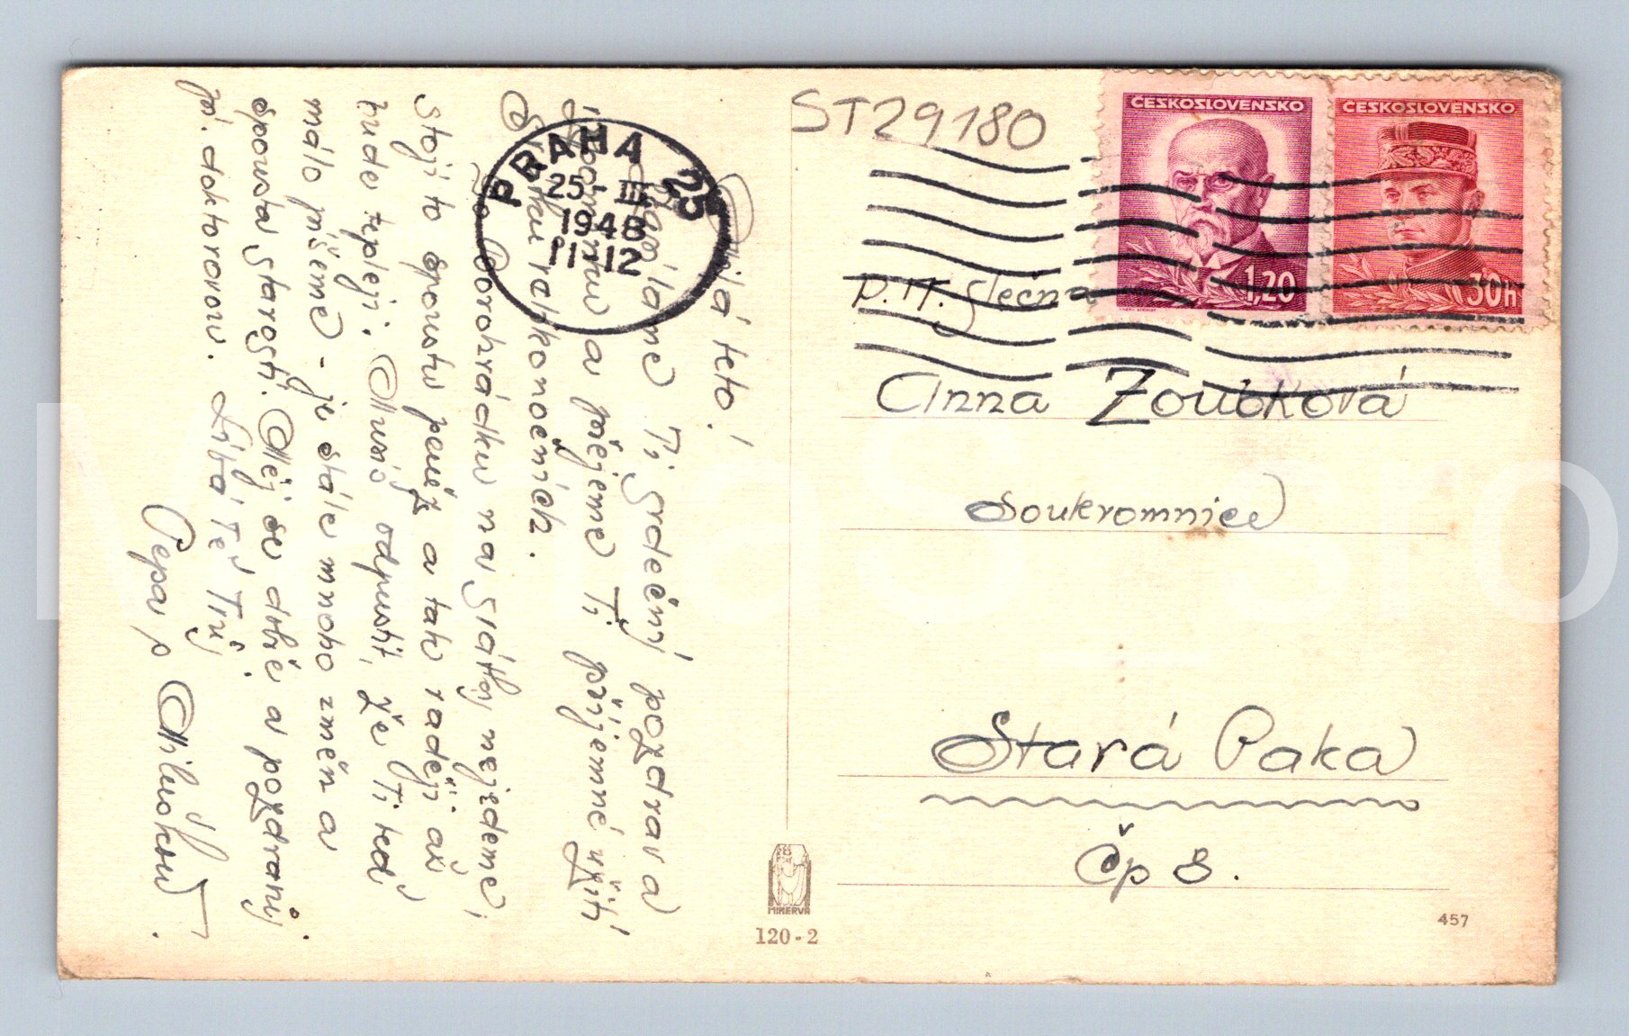 Milá teto!
Zasíláme Ti srdečný pozdrav a
vzpomínku a přejeme Ti příjemné užití
svátků velikonočních.
Do Borohrádku na svátky nejedeme,
stojí to spoustu peněz a tak raději až
bude tepleji. Musíš odpustit, že Ti teď
málo píšeme - je stále mnoho změn a
spousta starostí. Měj se dobře a pozdravuj
p. doktorovu. Líbá Tě Tvůj
Pepa s Miluškou.
ST29180
PRAHA 25
25-III
1948
11-12
ČESKOSLOVENSKO
1,20
ČESKOSLOVENSKO
30h
P. T. slečna
Anna Zoubková
soukromnice
Stará Paka
Čp 8.
MINERVA
120-2
457